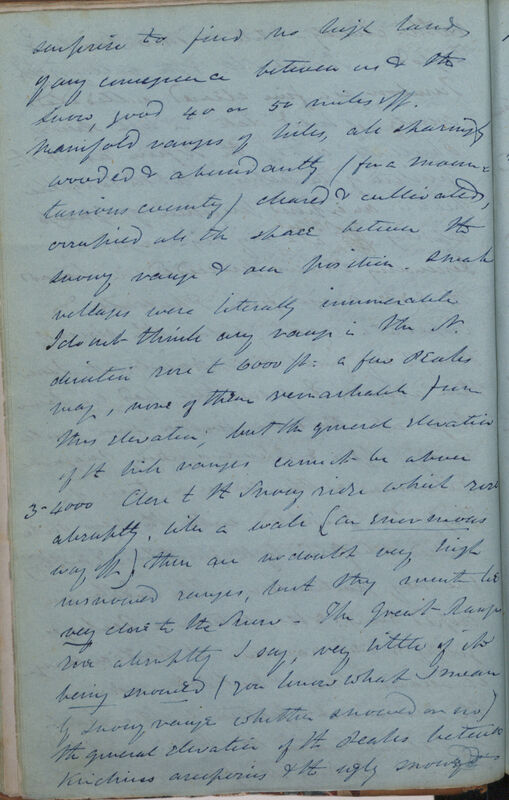 surprise to find no high land
of any consequence between us & the
snow, good 40 or 50 miles off.
Manifold ranges of hills, all sharingly
wooded & abundantly (for a moun=
tainous country) cleared & cultivated,
occupied all the space between the
snowy range & our position. Small
villages were literally innumerable
I do not think any range in the N.
direction rose to 6000 ft: a few Peaks
may, none of them remarkable from
this elevation; but the general elevation
of the hill ranges cannot be above
3-4000 Close to the Snowy ridge which rose
abruptly, like a wall (an enormous
way off) there are no doubt very high
unsnowed ranges, but they must be
very close to the Snow - The Great Range
rose abruptly I say, very little of it
being snowed (you know what I mean
by snowy range whether snowed or no)
the general elevation of the Peaks between
& the ugly snowy